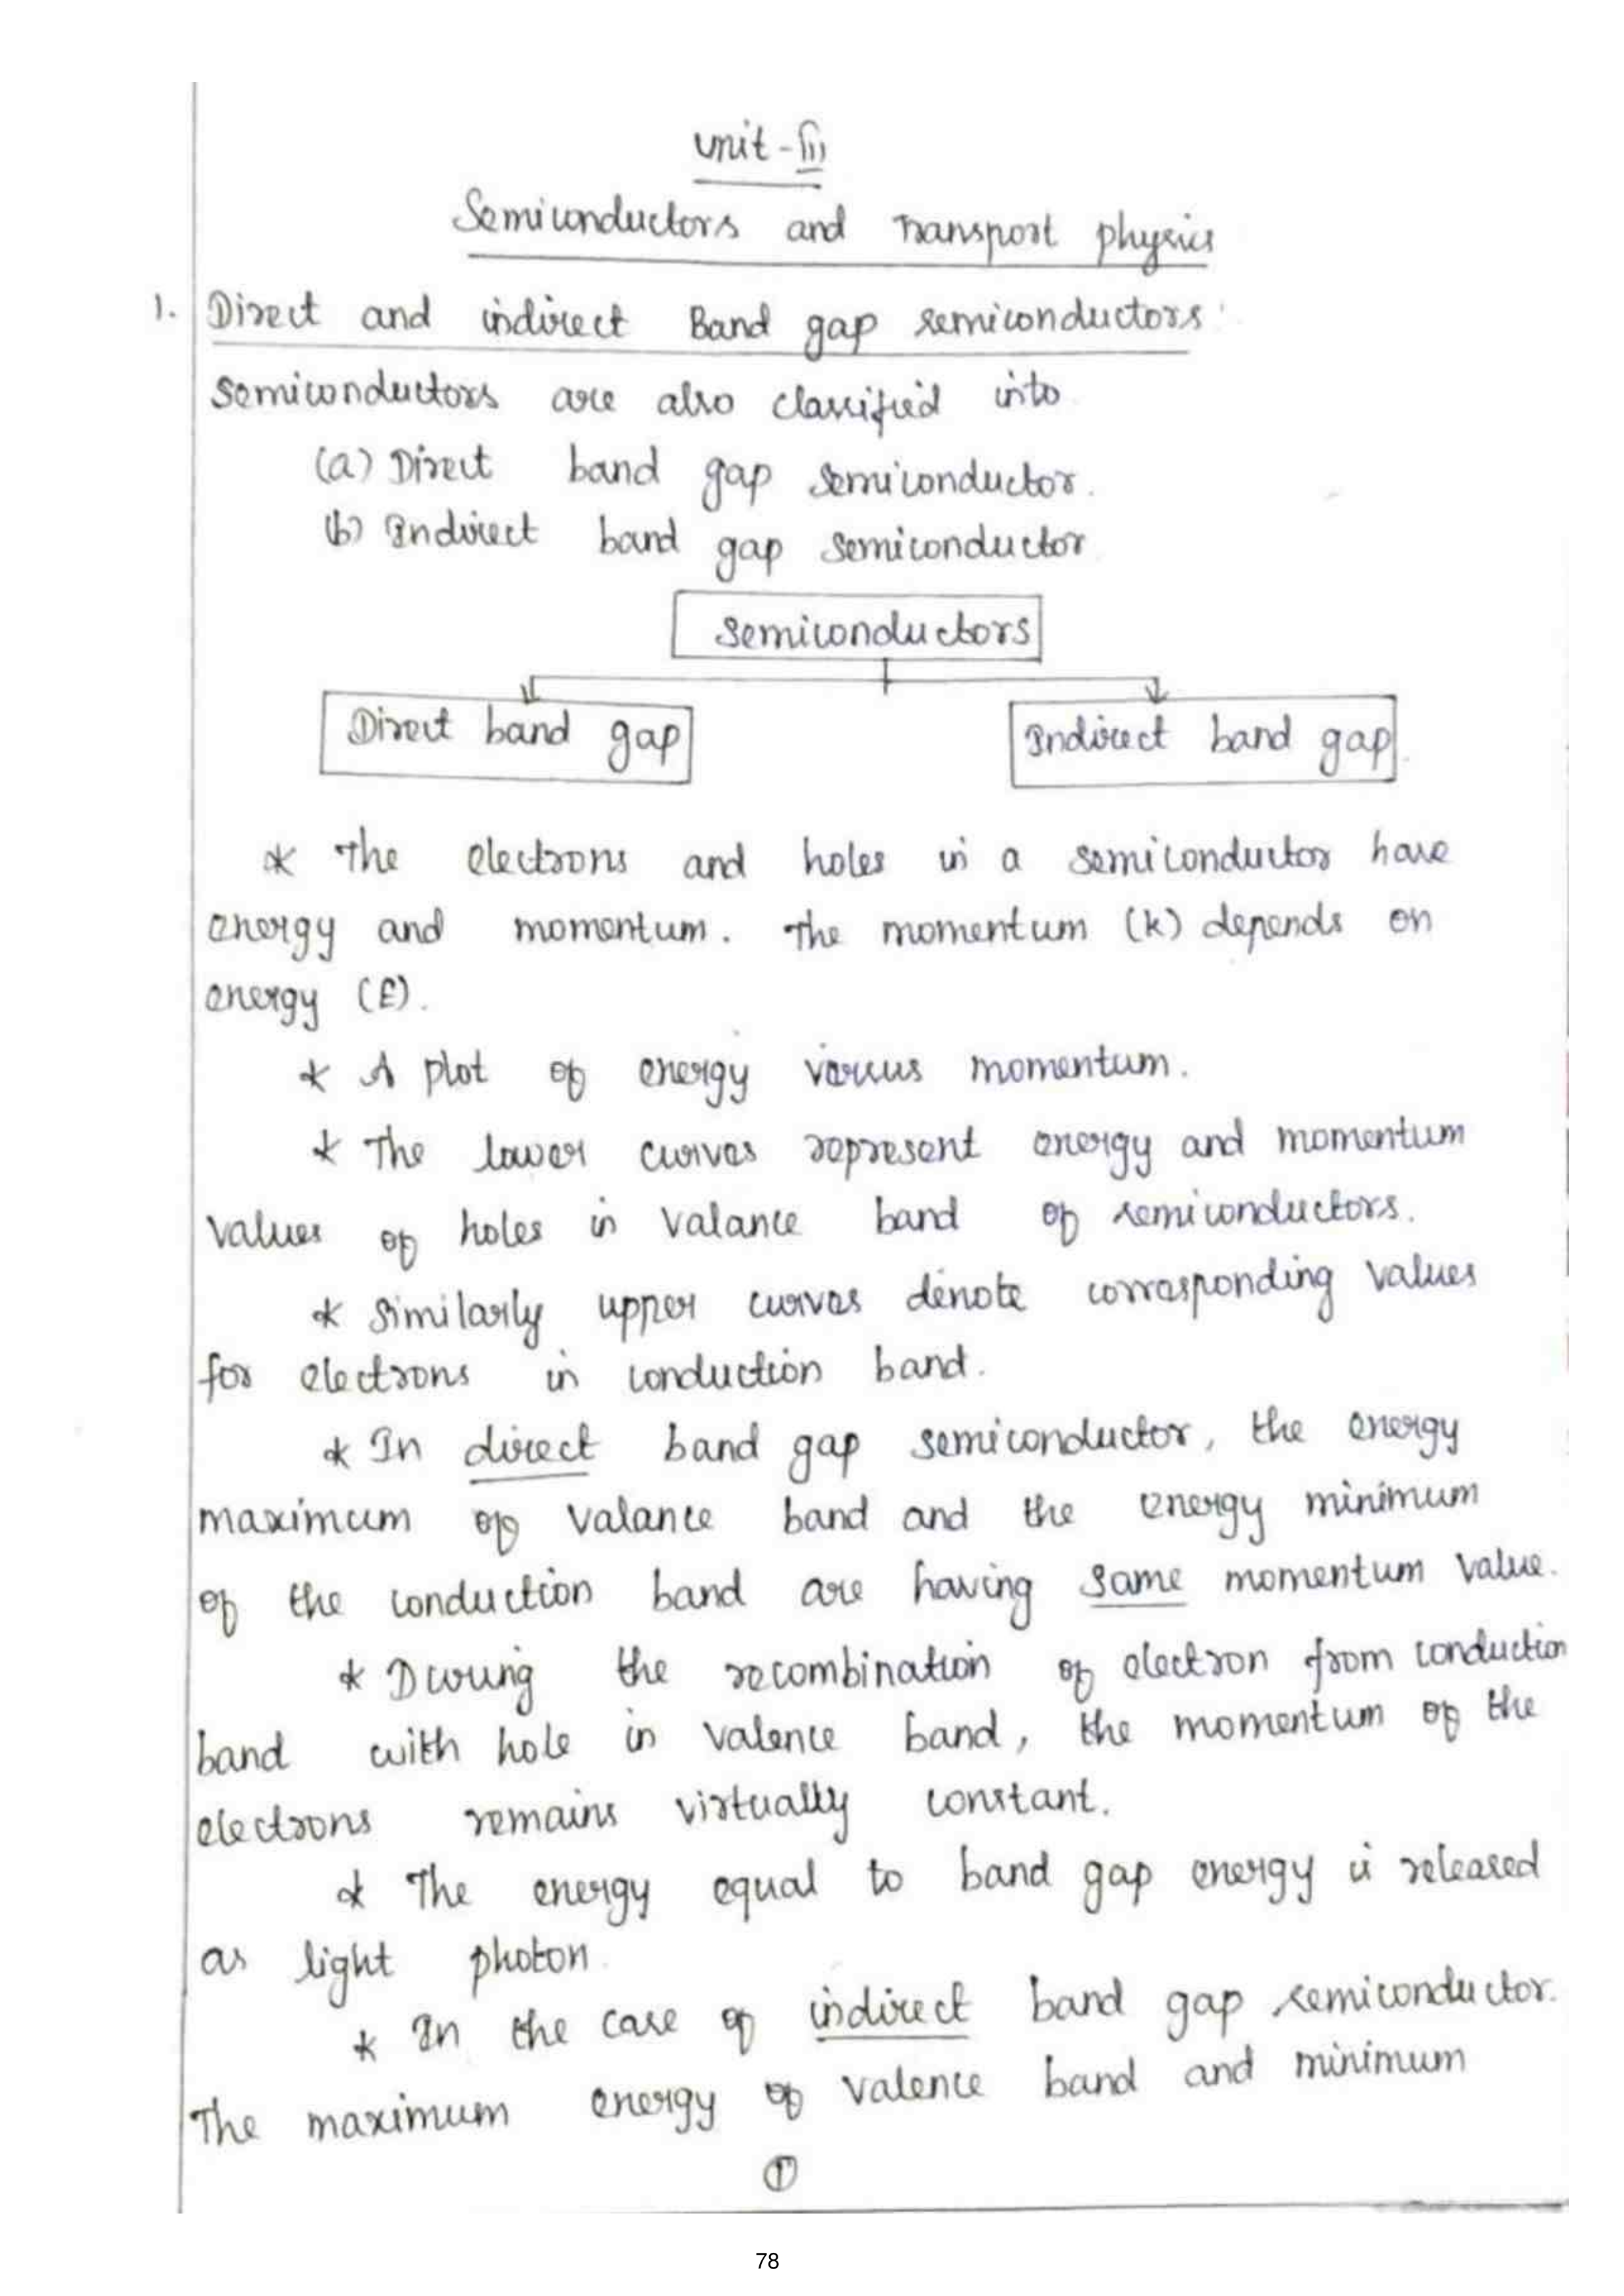 Unit - III
Semiconductors and Transport physics
1. Direct and indirect Band gap semiconductors
Semiconductors are also classified into
(a) Direct band gap semiconductor.
(b) Indirect band gap semiconductor
Semiconductors
Direct band gap
Indirect band gap.
* The electrons and holes in a semiconductor have
energy and momentum. The momentum (k) depends on
energy (E).
* A plot of energy versus momentum.
* The lower curves represent energy and momentum
values of holes in valance band of semiconductors.
* Similarly upper curves denote corresponding values
for electrons in conduction band.
* In direct band gap semiconductor, the energy
maximum of valance band and the energy minimum
of the conduction band are having same momentum value.
* During the recombination of electron from conduction
band with hole in valence band, the momentum of the
electrons remains virtually constant.
* The energy equal to band gap energy is released
as light photon.
* In the case of indirect band gap semiconductor.
The maximum energy of valence band and minimum
1
78